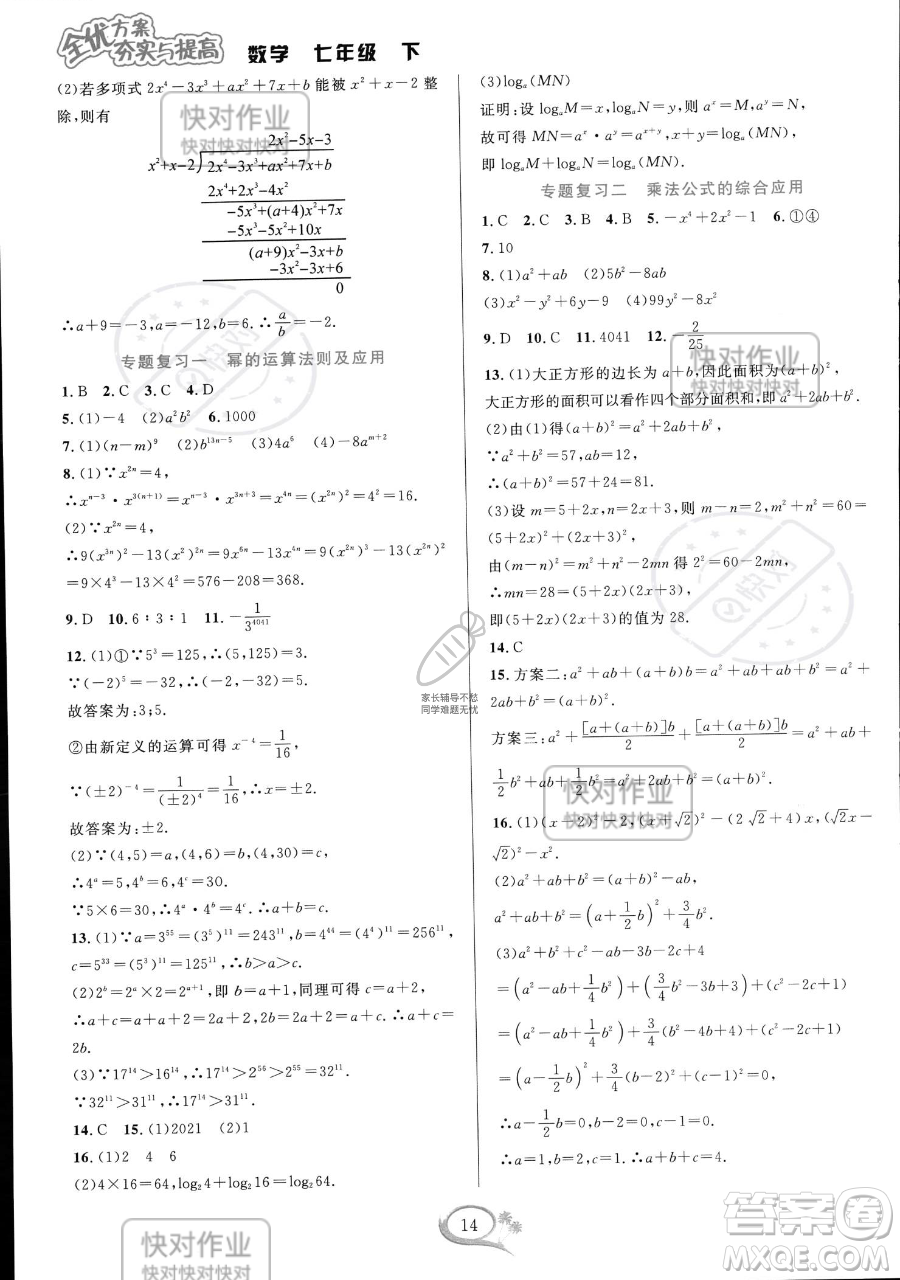 全优方案
夯实与提高 数学 七年级 下
(2)若多项式 2x⁴-3x³+ax²+7x+b 能被 x²+x-2 整
除,则有
2x²-5x-3
x²+x-2)2x⁴-3x³+ax²+7x+b
2x⁴+2x³-4x²
-5x³+(a+4)x²+7x
-5x³-5x²+10x
(a+9)x²-3x+b
-3x²-3x+6
0
∴a+9=-3,a=-12,b=6.∴a/b=-2.
专题复习一 幂的运算法则及应用
1.B 2.C 3.C 4.D
5.(1)-4 (2)a²b² 6.1000
7.(1)(n-m)⁹ (2)b¹³ⁿ⁻⁵ (3)4a⁶ (4)-8aᵐ⁺²
8.(1)∵x²ⁿ=4,
∴xⁿ⁻³·x³⁽ⁿ⁺¹⁾=xⁿ⁻³·x³ⁿ⁺³=x⁴ⁿ=(x²ⁿ)²=4²=16.
(2)∵x²ⁿ=4,
∴9(x³ⁿ)²-13(x²)²ⁿ=9x⁶ⁿ-13x⁴ⁿ=9(x²ⁿ)³-13(x²ⁿ)²
=9×4³-13×4²=576-208=368.
9.D 10.6∶3∶1 11.-1/3⁴⁰⁴¹
12.(1)①∵5³=125,∴(5,125)=3.
∵(-2)⁵=-32,∴(-2,-32)=5.
故答案为:3;5.
②由新定义的运算可得 x⁻⁴=1/16,
∵(±2)⁻⁴=1/(±2)⁴=1/16,
故答案为:±2.
(2)∵(4,5)=a,(4,6)=b,(4,30)=c,
∴4ᵃ=5,4ᵇ=6,4ᶜ=30.
∵5×6=30,∴4ᵃ·4ᵇ=4ᶜ.∴a+b=c.
13.(1)∵a=3⁵⁵=(3⁵)¹¹=243¹¹,b=4⁴⁴=(4⁴)¹¹=256¹¹,
c=5³³=(5³)¹¹=125¹¹,∴b>a>c.
(2)2ᵇ=2ᵃ×2=2ᵃ⁺¹,即 b=a+1,同理可得 c=a+2,
∴a+c=a+a+2=2a+2=2(a+1)=2b.即 a+c=
2b.
(3)∵17¹⁴>16¹⁴,∴17¹⁴>2⁵⁶>2⁵⁵=32¹¹.
∵32¹¹>31¹¹.∴17¹⁴>31¹¹.
14.C 15.(1)2021 (2)1
16.(1)2 4 6
(2)4×16=64,log₂4+log₂16=log₂64.
(3)logₐ(MN)
证明:设 logₐM=x,logₐN=y,则 aˣ=M,aʸ=N,
故可得 MN=aˣ·aʸ=aˣ⁺ʸ,x+y=logₐ(MN),
即 logₐM+logₐN=logₐ(MN).
专题复习二 乘法公式的综合应用
1.C 2.C 3.B 4.B 5.-x⁴+2x²-1 6.①④
7.10
8.(1)a²+ab (2)5b²-8ab
(3)x²-y²+6y-9 (4)99y²-8x²
9.D 10.C 11.4041 12.-2/25
13.(1)大正方形的边长为 a+b,因此面积为(a+b)²,
大正方形的面积可以看作四个部分面积和,即 a²+2ab+b²
(2)由(1)得(a+b)²=a²+2ab+b²,
∵a²+b²=57,ab=12,
∴(a+b)²=57+24=81.
(3)设 m=5+2x,n=2x+3,则 m-n=2,m²+n²=60=
(5+2x)²+(2x+3)²,
由(m-n)²=m²+n²-2mn 得 2²=60-2mn,
∴mn=28=(5+2x)(2x+3),
即(5+2x)(2x+3)的值为 28.
14.C
15.方案二:a²+ab+(a+b)b=a²+ab+ab+b²=a²+
2ab+b²=(a+b)².
方案三:a²+[a+(a+b)]b/2+[a+(a+b)]b/2=a²+ab+
1/2b²+ab+1/2b²=a²+2ab+b²=(a+b)².
16.(1)(x-2)²-2,(x+√2)²-(2√2+4)x,(√2x-
√2)²-x².
(2)a²+ab+b²=(a+b)²-ab,
a²+ab+b²=(a+1/2b)²+3/4b².
(3)a²+b²+c²-ab-3b-2c+4
=(a²-ab+1/4b²)+(3/4b²-3b+3)+(c²-2c+1)
=(a²-ab+1/4b²)+3/4(b²-4b+4)+(c²-2c+1)
=(a-1/2b)²+3/4(b-2)²+(c-1)²=0,
∴a-1/2b=0,b-2=0,c-1=0,
∴a=1,b=2,c=1,∴a+b+c=4.
14
快对作业
快对快对快对
家长辅导不愁
同学难题无忧
答案圈
MXQE.COM